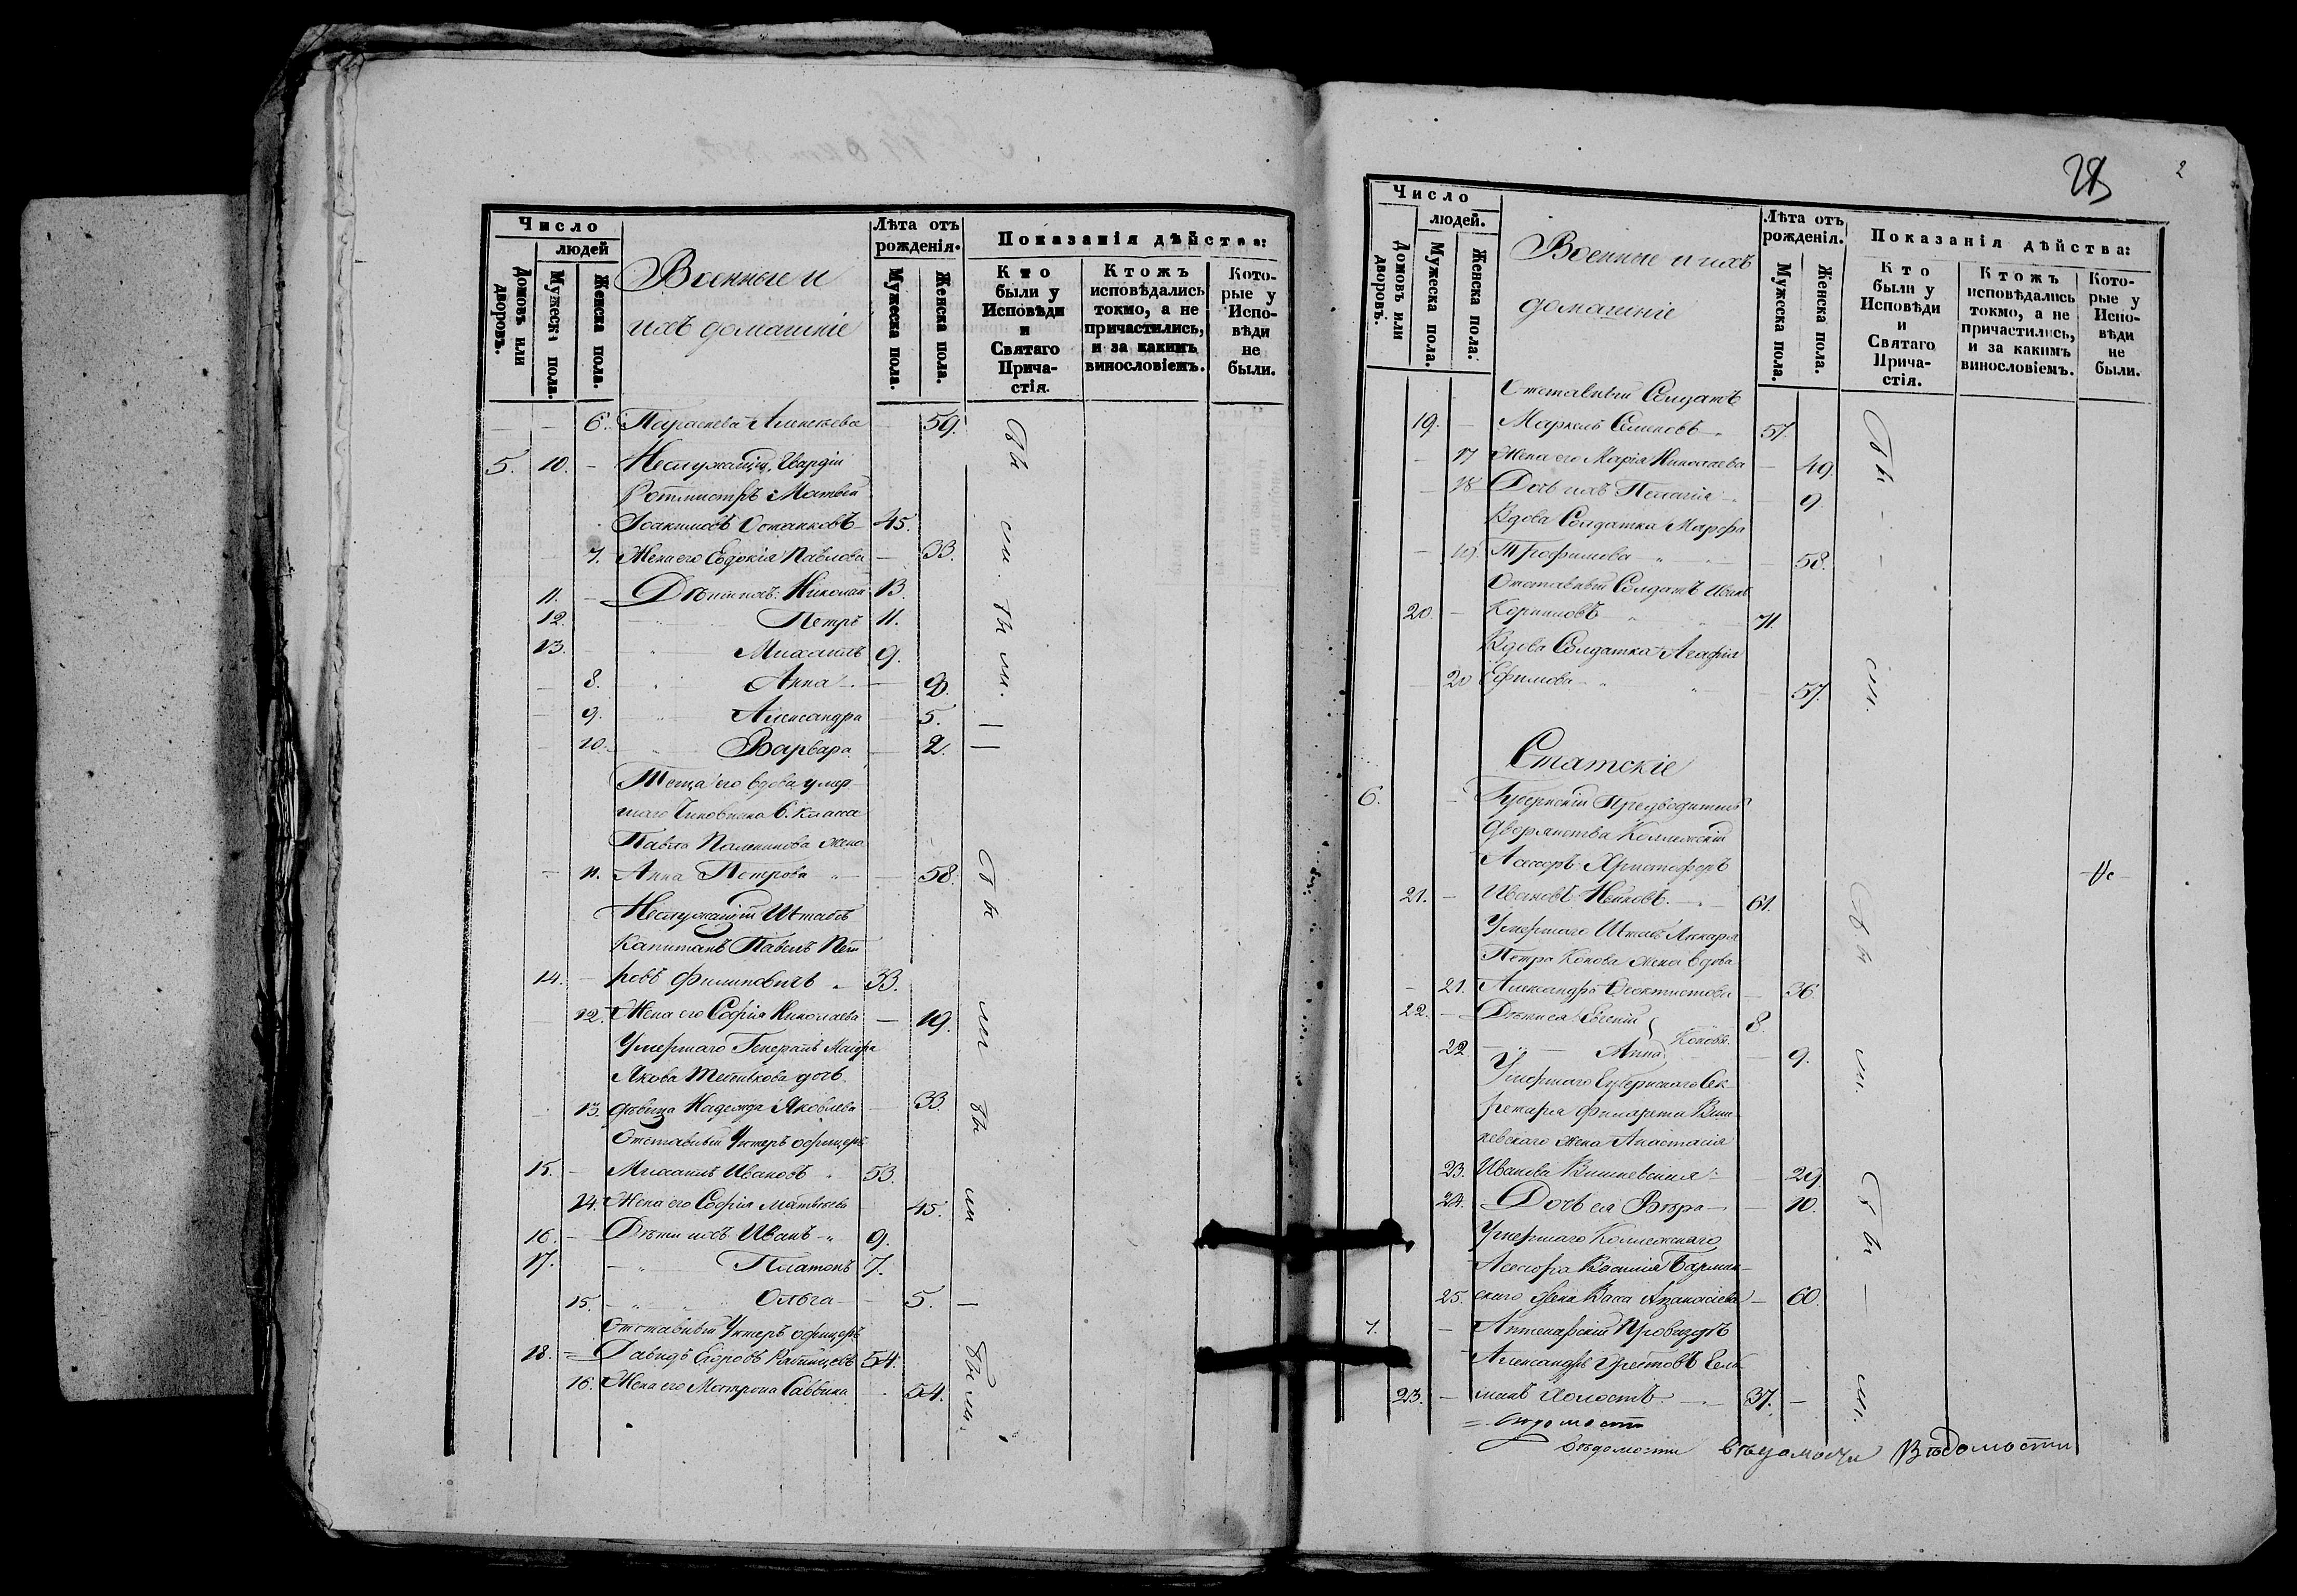 Число
людей
Домовъ или дворовъ.
Мужеска пола.
Женска пола.
Военные и
ихъ домашніе
Лѣта отъ рожденія.
Мужеска пола.
Женска пола.
Показанія дѣйства:
Кто были у Исповѣди и Святаго Прича-стія.
Ктожъ исповѣдались токмо, а не причастились, и за какимъ винословіемъ.
Кото-рые у Испо-вѣди не были.
6. Параскева Алексѣева 59.
5. 10. Неслужащій, Гвардіи
Ротмистръ Матвѣй
Іоакимовъ Останковъ 45.
7. Жена его Евдокія Павлова 33.
11. Дѣти ихъ: Николай 13.
12. Петръ 11.
13. Михаилъ 9.
8. Анна 9.
9. Александра 5.
10. Варвара 2.
Теща его вдова умер-
шаго Чиновника 6. класса
Павла жена
11. Анна Петрова 58.
Неслужащій Штабсъ
Капитанъ Павелъ Пет
14. ровъ Филиповичъ 33.
12. Жена его Софія Николаева 19.
Умершаго Генералъ Маіора
Якова дочь
13. дѣвица Надежда Яковлева 33.
Отставный Унтеръ офицеръ
15. Михаилъ Ивановъ 53.
14. Жена его Софія Матвѣева 45.
16. Дѣти ихъ Иванъ 9.
17. Платонъ 7.
15. Ольга 5.
Отставный Унтеръ офицеръ
18. Давидъ Егоровъ 54.
16. Жена его Матрона Саввина 54.
были
28
2
Число
людей.
Домовъ или дворовъ.
Мужеска пола.
Женска пола.
Военные и ихъ
домашніе
Лѣта отъ рожденія.
Мужеска пола.
Женска пола.
Показанія дѣйства:
Кто были у Исповѣди и Святаго Прича-стія.
Ктожъ исповѣдались токмо, а не причастились, и за какимъ винословіемъ.
Кото-рые у Испо-вѣди не были.
Отставный Солдатъ
19. Маркелъ Семеновъ 57.
17 Жена его Марія Николаева 49.
18 Дочь ихъ Пелагія 9.
Вдова Солдатка Марфа
19. Трофимова 58.
Отставный Солдатъ Иванъ
20. Корниловъ 71.
Вдова Солдатка Агафія
20 Ефимова 57.
Статскіе
6. Губернскій Предводитель
Дворянства Коллежскій
Асесоръ Христофоръ
21. Ивановъ 61.
Умершаго Штабъ Лѣкаря
Петра Конова жена вдова
21. Александра Феоктистова 36.
22. Дѣти ея Евгеній 8.
Коновы.
22. Анна 9.
Умершаго Губернскаго Сек
ретаря Филарета Виш
невскаго жена Анастасія
23. Иванова Вишневская 29.
24. Дочь ея Вѣра 10.
Умершаго Коллежскаго
Асесора Василія
25. скаго жена Васса Афанасіева 60.
7. Аптекарскій Провизоръ
Александръ
23. Холостъ 37.
вѣдомости вѣдомости Вѣдомости